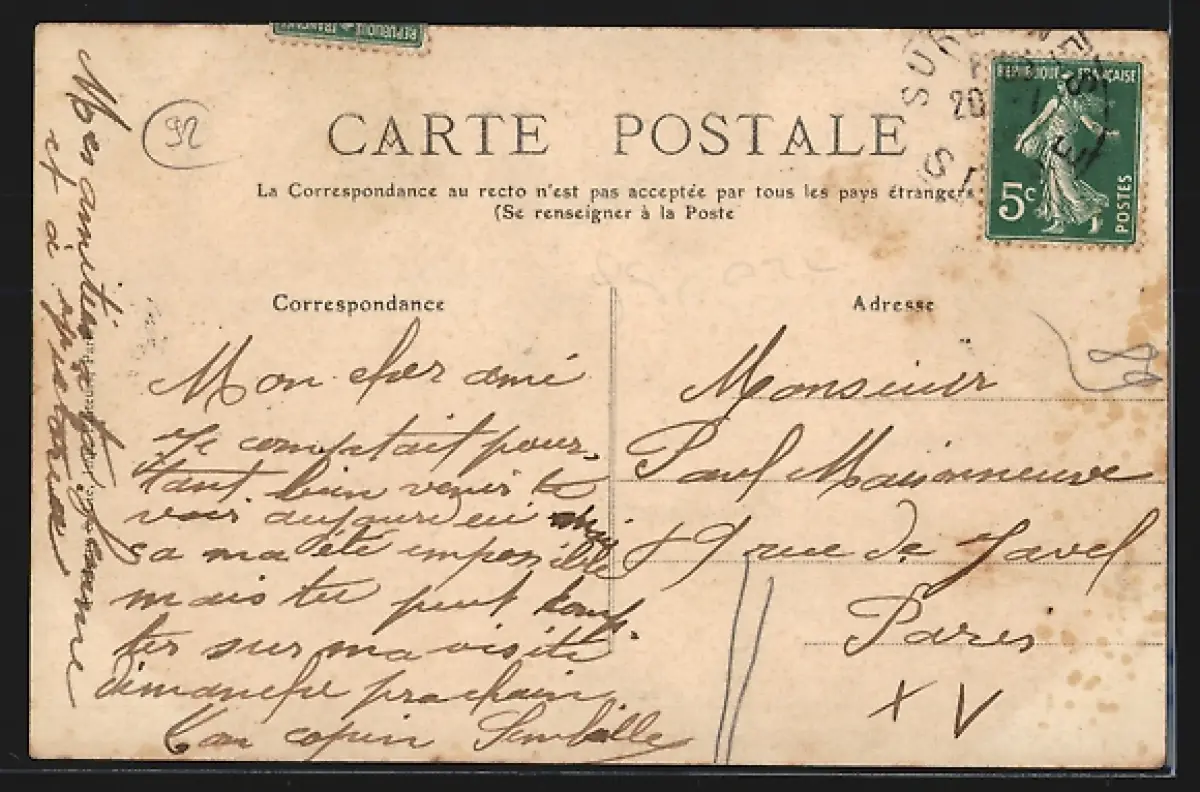 RÉPUBLIQUE FRANÇAISE
92
CARTE POSTALE
La Correspondance au recto n'est pas acceptée par tous les pays étrangers
(Se renseigner à la Poste
SURESNES
20
RÉPUBLIQUE FRANÇAISE
5c
POSTES
Correspondance
Mon cher ami
Je comptait pour-
tant bien venir te
voir aujourdeui mais
sa ma été imposible
mais tu peut comp-
ter sur ma visite
dimanche prochain
Ton copin
Mes amitiés a ta femme
et a
Adresse
Monsieur
Paul Maisonneuve
rue de Javel
Paris
XV